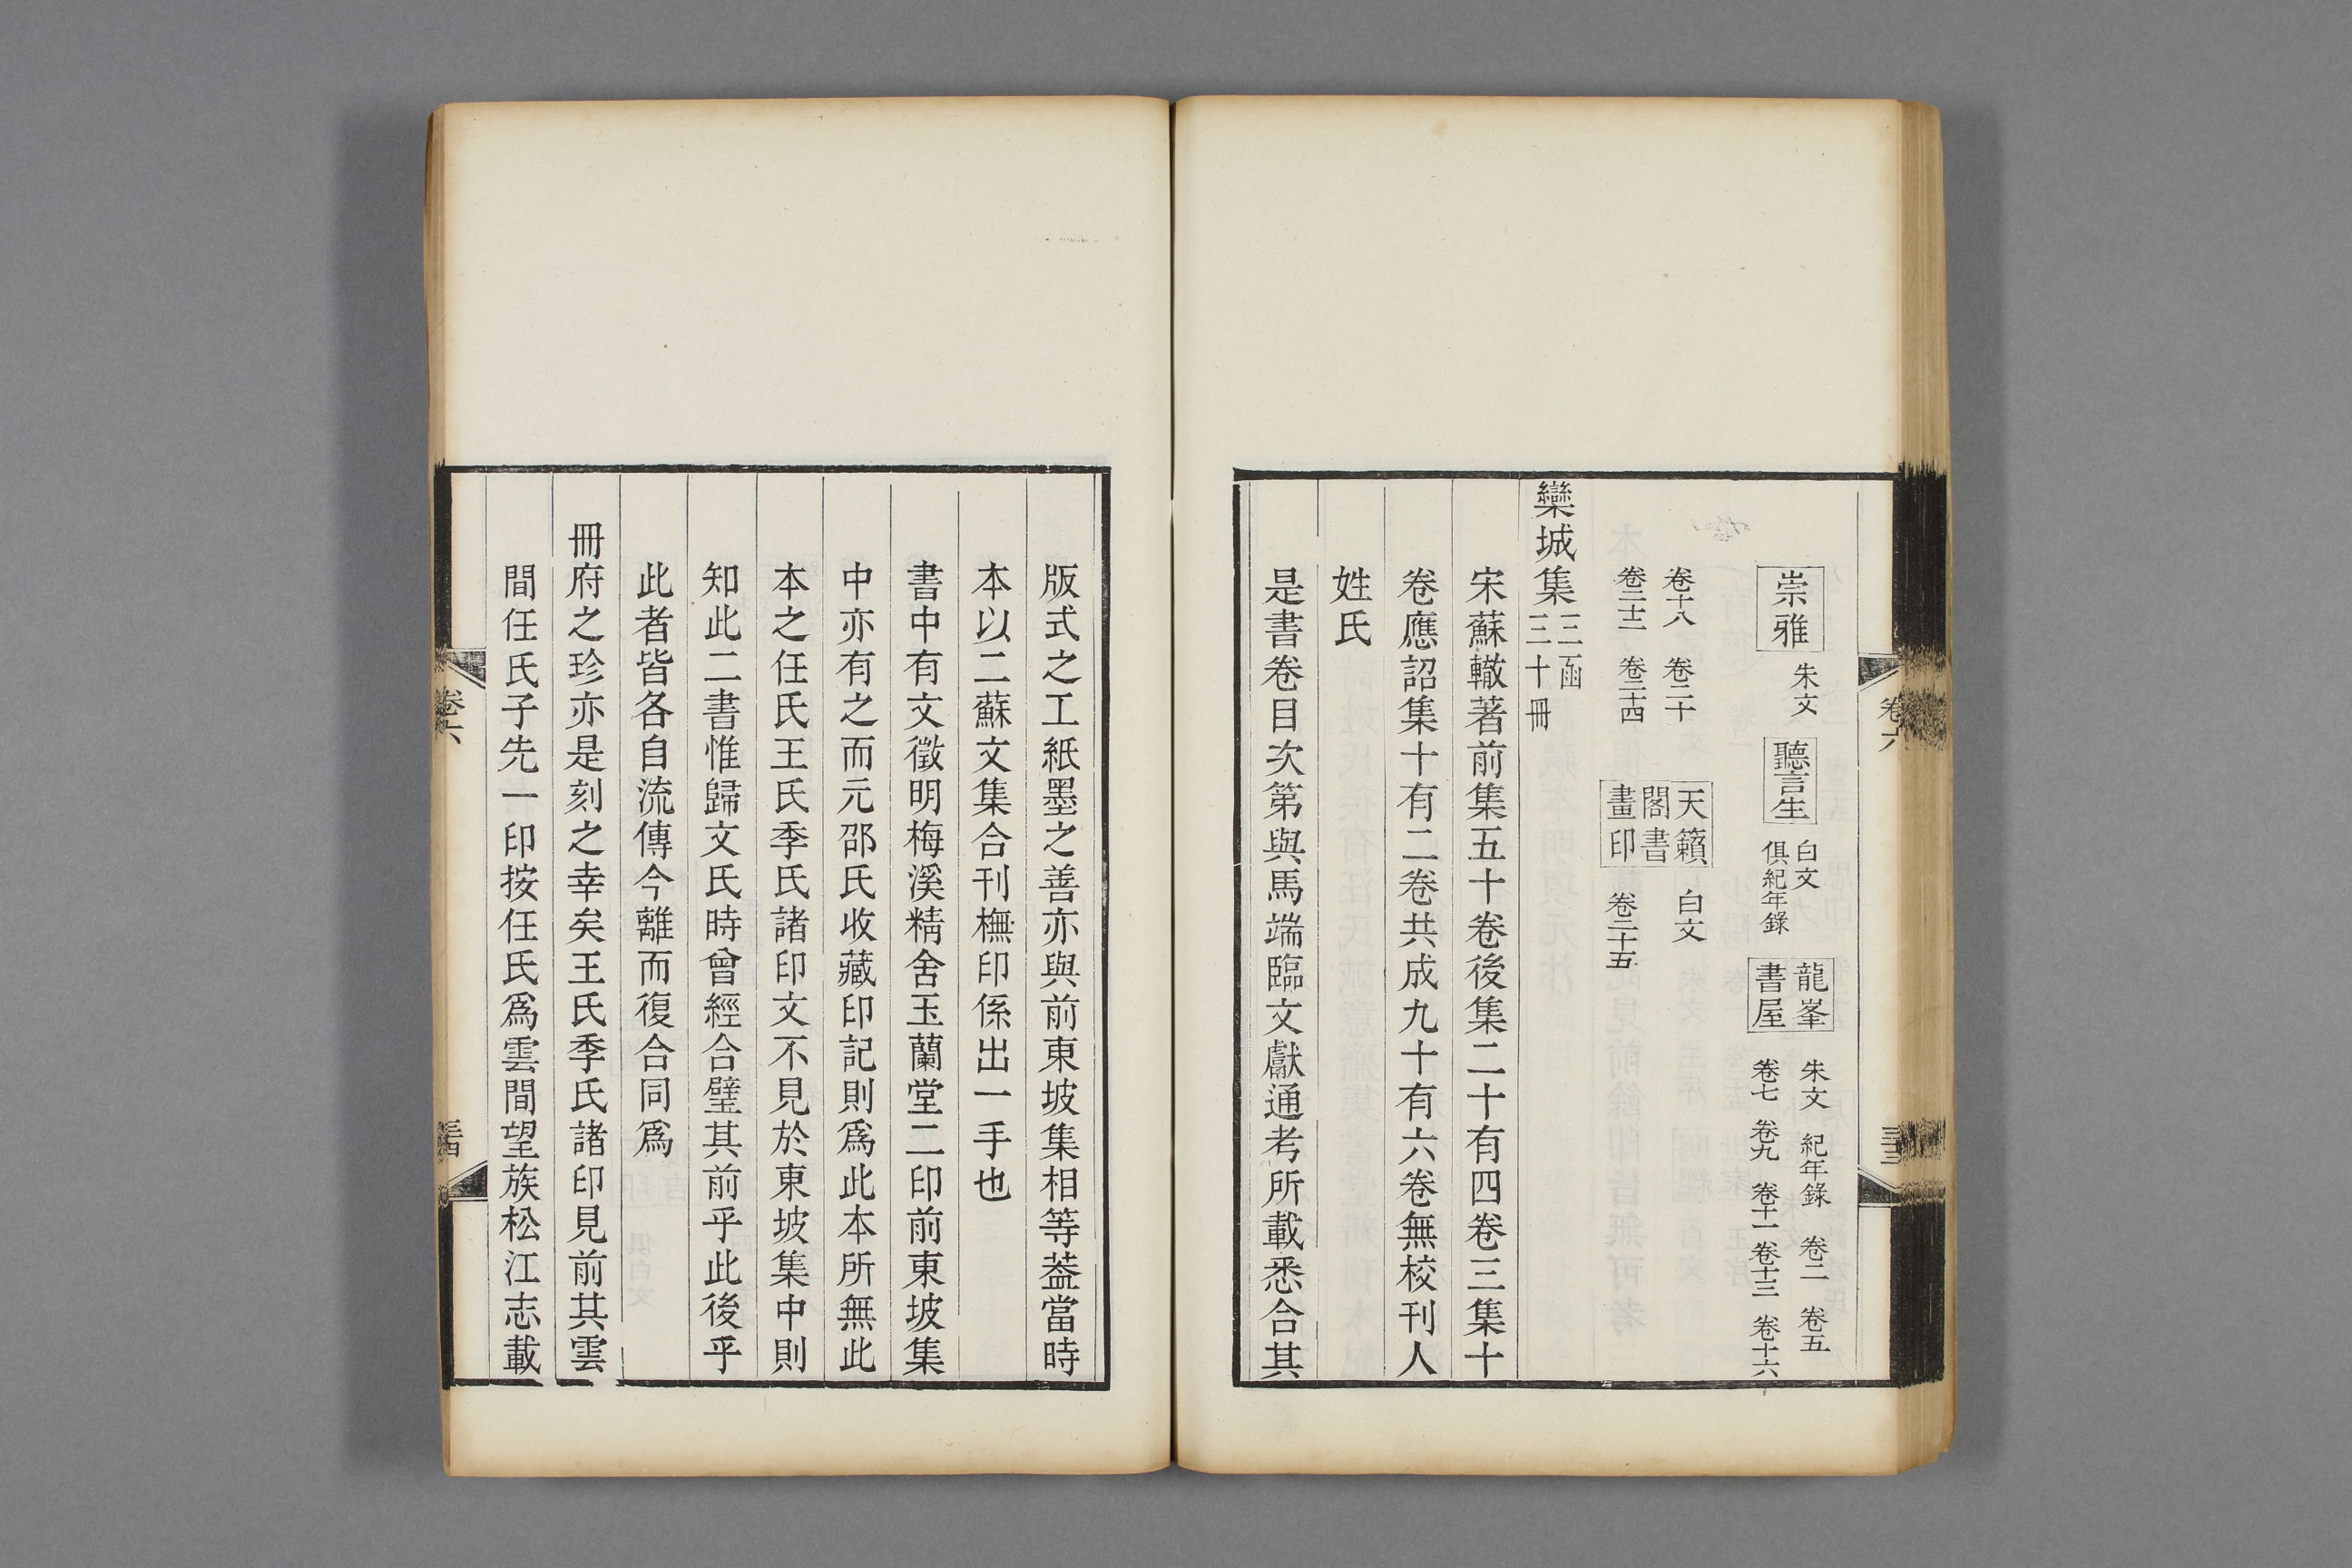 崇雅 朱文 聽言生 白文 俱紀年錄 龍峯書屋 朱文 紀年錄 卷二 卷五 卷七 卷九 卷十一 卷十三 卷十六
卷十八 卷二十 卷二十二 卷二十四 天籟閣書畫印 白文 卷二十五
欒城集 三函三十冊
宋蘇轍著前集五十卷後集二十有四卷三集十
卷應詔集十有二卷共成九十有六卷無校刊人
姓氏
是書卷目次第與馬端臨文獻通考所載悉合其
卷六
三十三
版式之工紙墨之善亦與前東坡集相等葢當時
本以二蘇文集合刊橅印係出一手也
書中有文徵明梅溪精舍玉蘭堂二印前東坡集
中亦有之而元邵氏收藏印記則爲此本所無此
本之任氏王氏季氏諸印文不見於東坡集中則
知此二書惟歸文氏時曾經合璧其前乎此後乎
此者皆各自流傳今離而復合同爲
冊府之珍亦是刻之幸矣王氏季氏諸印見前其雲
間任氏子先一印按任氏爲雲間望族松江志載
卷六